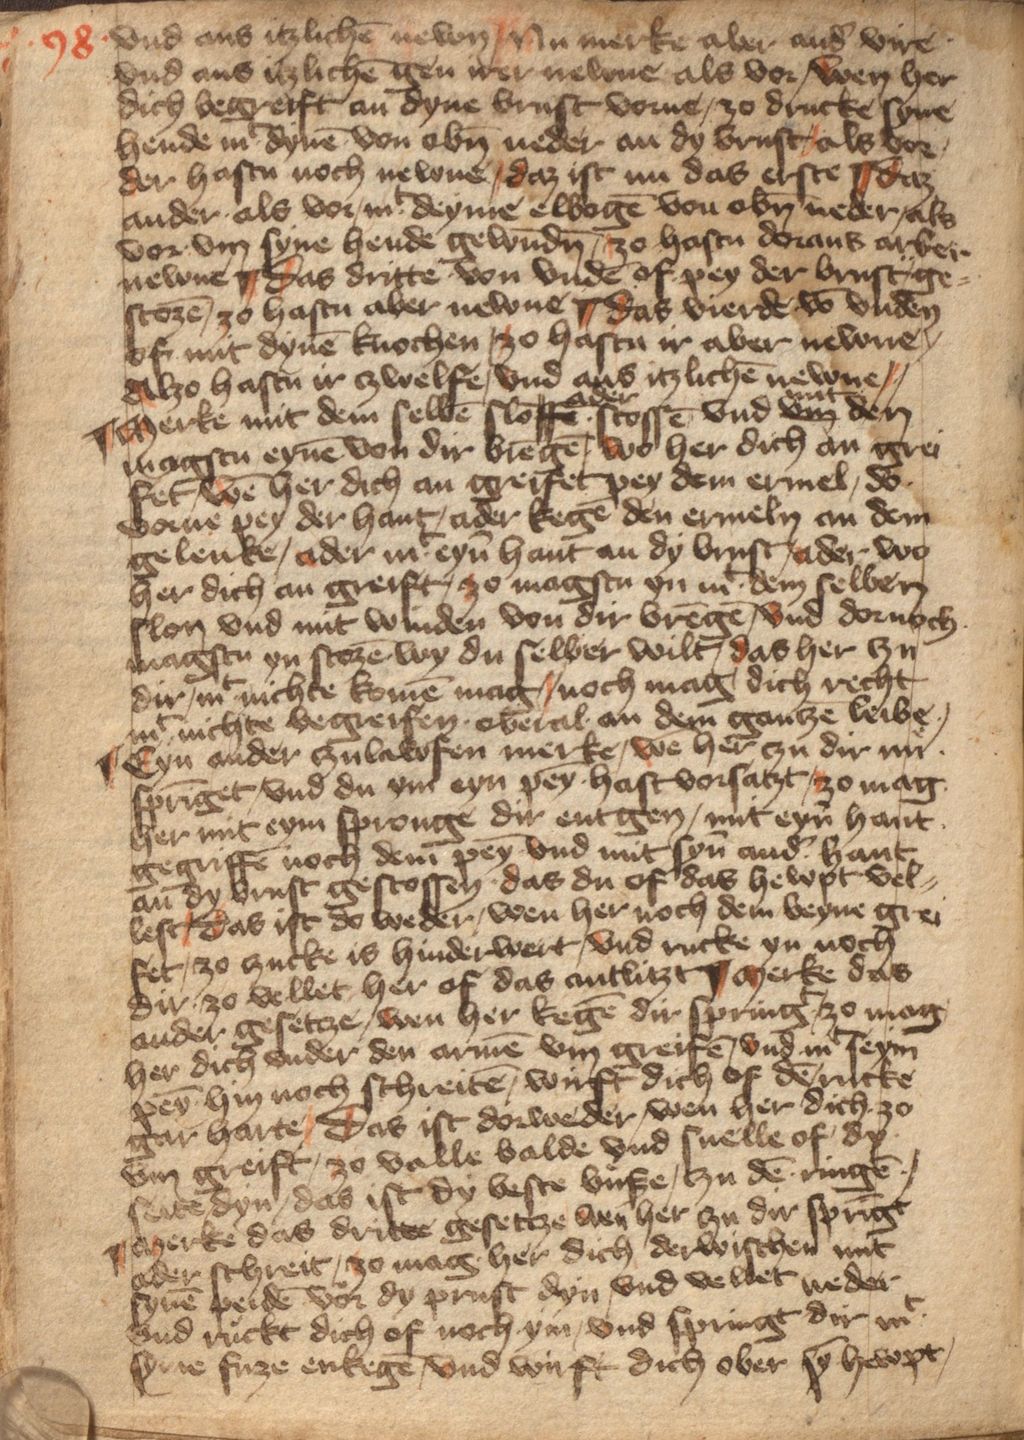 98· vnd aus itzlichē newn / Nu merke aber and͛ vire
vnd aus itzlichē gen irer newne als vor / Wen her
dich begreift an dyne brust vorne / zo drucke syne
hende mͭ dynē von obn̄ neder an dy brust / als vor
der hastu noch newne / daz ist nu das erste ¶ Daz
ander als vor / mͭ deyme elbogē von obn̄ neder / als
vor vm syne hende gewūdn̄ / zo hastu doraus aber
newne ¶ Das dritte von vndē of pey der brust ge=
stozē / zo hastu aber newne ¶ das vierde vō vnden
of mit dynē knochen / zo hastu ir aber newne /
Alzo hastu ir czwelfe / vnd aus itzlichē newne //
¶ Merke mit dem selbē sloffē ader stossē vnd vm mit den
magstu eynē von dir brēgē / wo her dich an grei
fet / wē her dich an greifet pey dem ermel / do
vorne pey der hant / ader kegē den ermeln an dem
gelenke / ader mͭ eyn̄ hant an dy brust / ader wo
her dich an greift / zo magstu yn mͭ dem selben
slon vnd mit winden von dir brēgē / vnd dornoch
magstu yn stozē wy du selber wilt / das her zu
dir / mͭ nichte komē mag / noch mag dich recht
mͭ nichte begreifen oberal an dem gantze leibe /
¶ Eyn ander czulawfen merke / wē her czu dir in
sprīget / vnd du ym eyn pey hast vorsatzt / zo mag
her mit eym spronge dir entgen / mit eyn̄ hant
gegriffē noch dem pey vnd mit syn̄ and͛ hant
an dy brust gestossen das du of das hewpt vel=
lest / Das ist do weder / wen her noch dem beyne grei
fet / zo zucke is hinderwert / vnd rucke yn noch
dir / zo vellet her of das antlitzt ¶ Merke das
ander gesetcze / wen her kegē dir springͭ / zo mag
her dich vnder den armē vm greifē / vnd mͭ seym
pey hin noch schreitē / wirft dich of dē rucke
gar harte / Das ist dorweder / wen her dich zo
vm greift / zo valle balde vnd snelle of dy
seite dyn / das ist dy beste buße / zu dē ringē /
¶ Merke das dritte gesetcze wen her zu dir sprīgͭ
ader schreit / zo mag her dich derwischen mit
synē peidē vor dy prust dyn / vnd vellet neder
vnd ruckt dich of noch ym / vnd springt dir mͭ
syne fuze enkegē / vnd wirft dich ober sȳ hewpt /